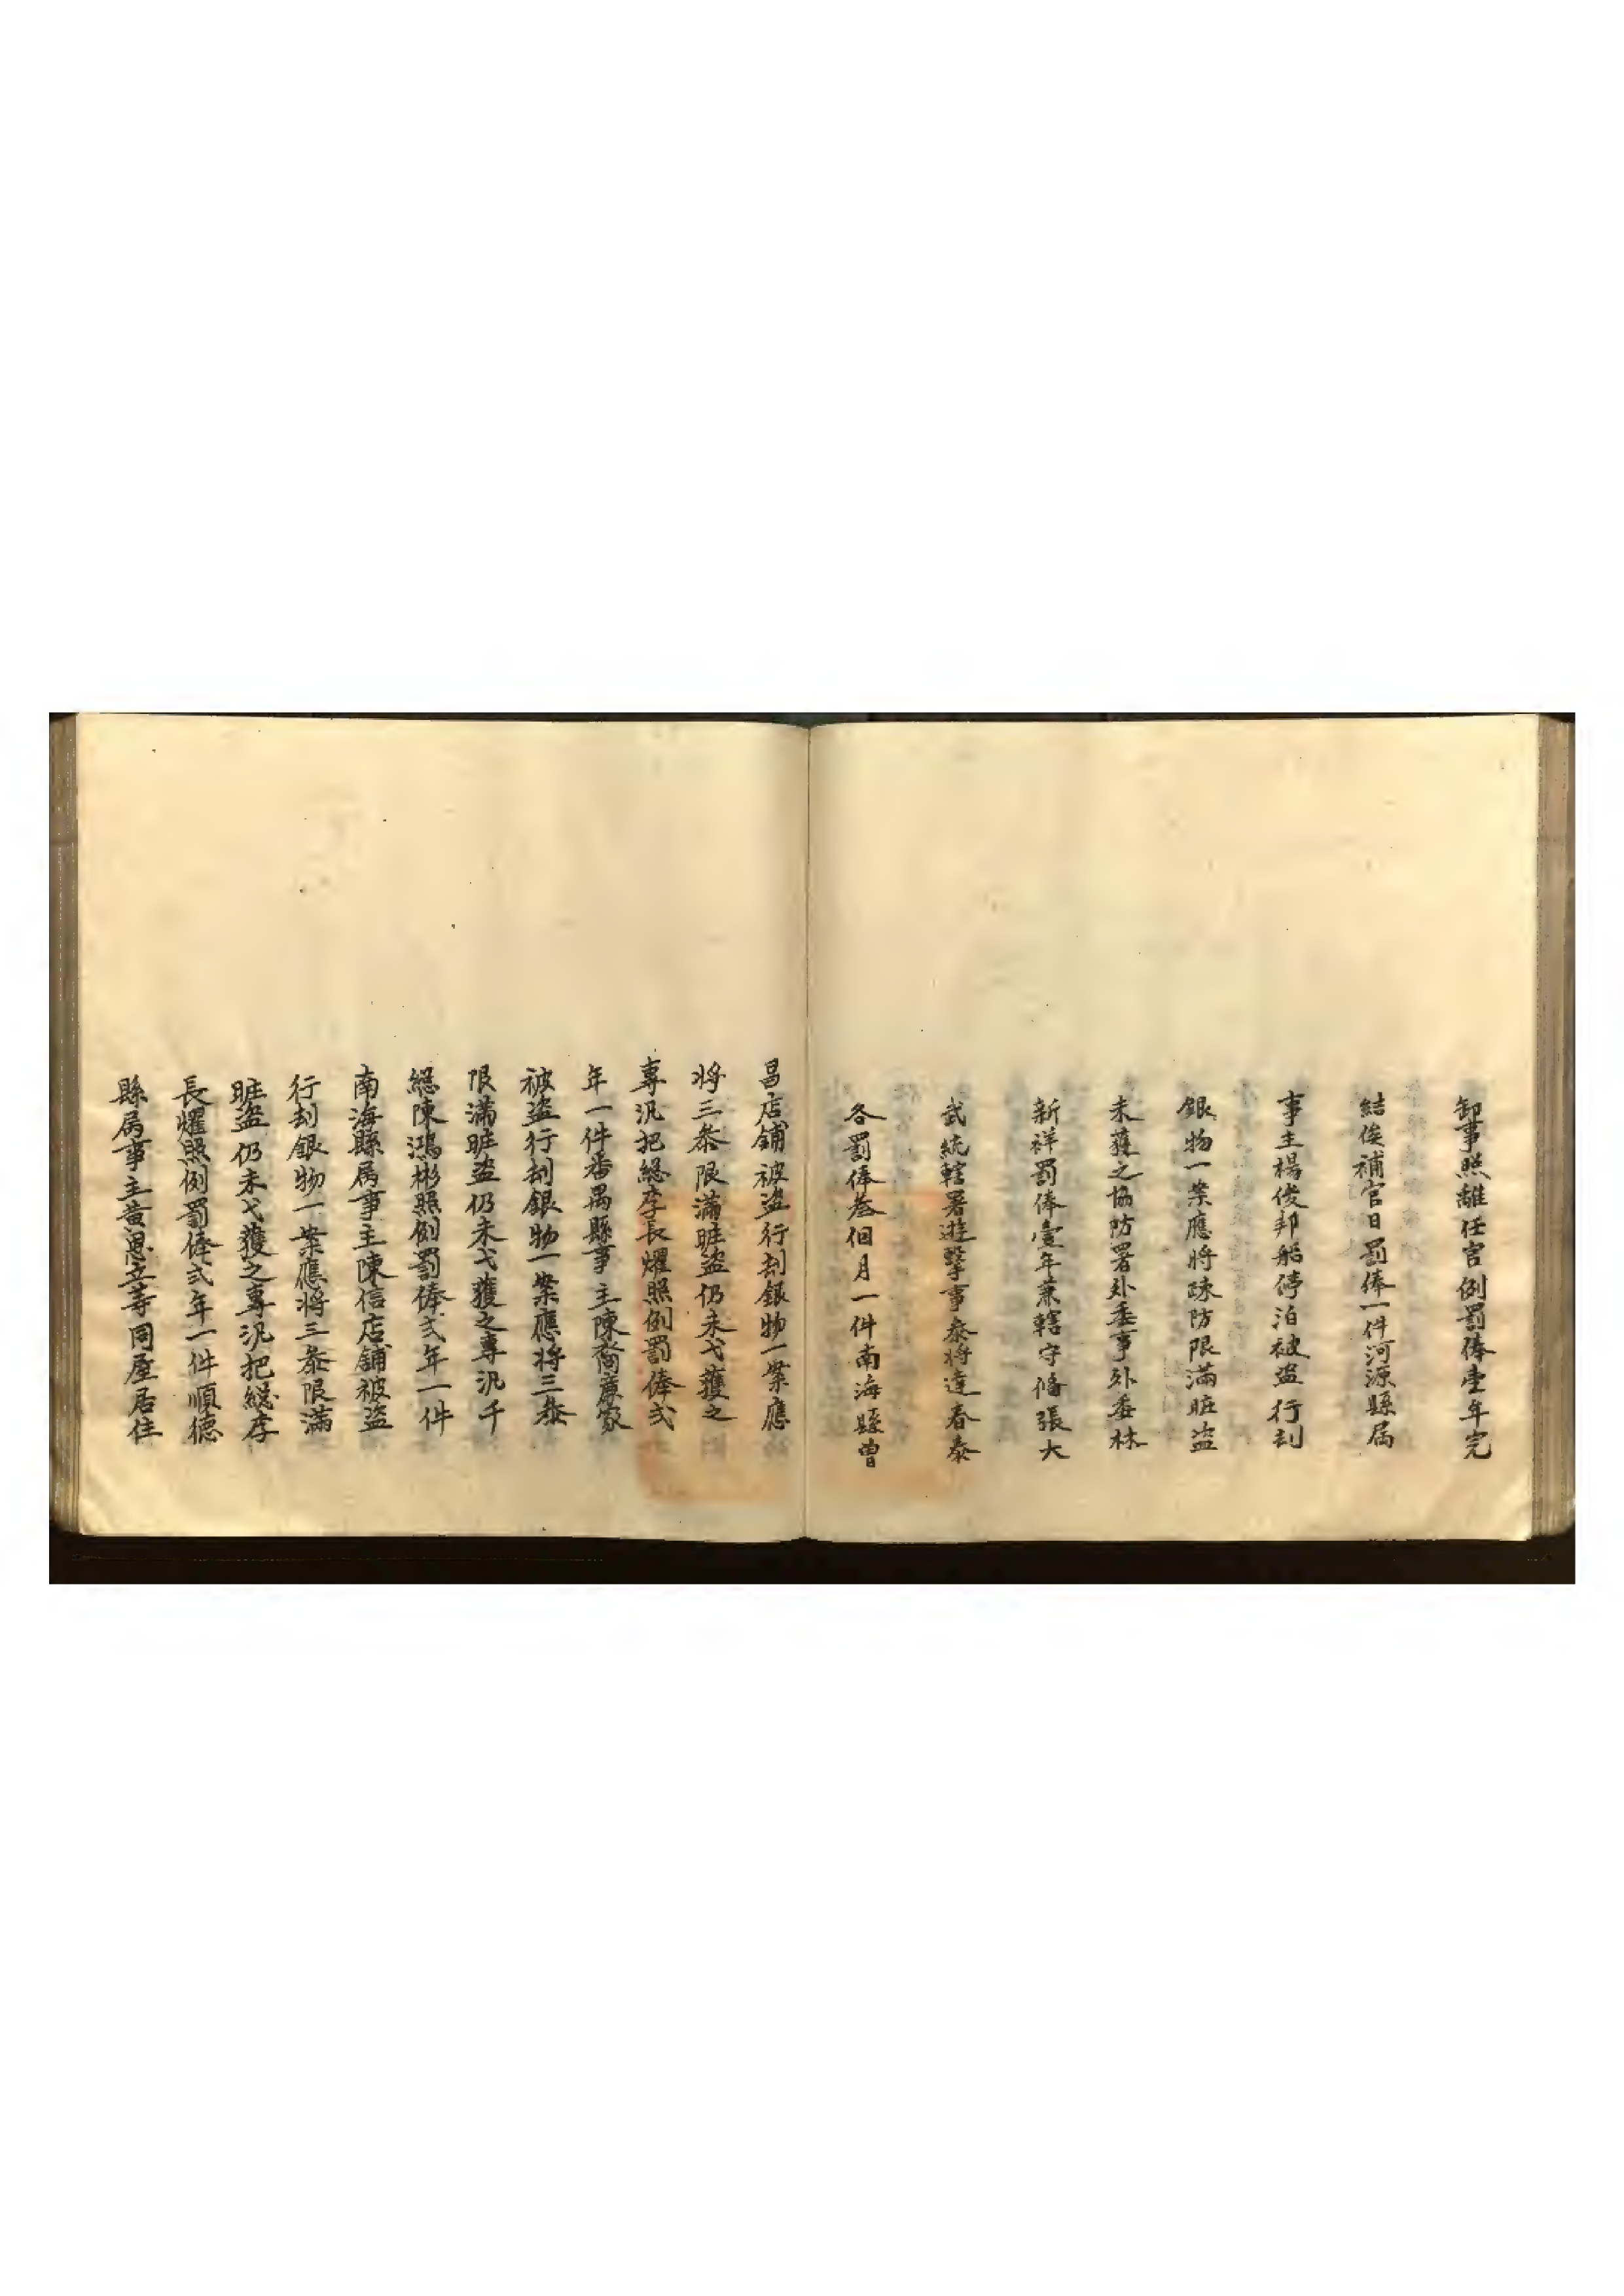 卸事照離任官例罰俸壹年完
結俟補官日罰俸一件河源縣屆
事主楊俊邦船停泊被盜行刦
銀物一案應將疎防限滿賍盜
未獲之協防署外委事外委林
新祥罰俸壹年兼轄守俻張大
武統轄署遊擊事叅將達春泰
各罰俸叁個月一件南海縣曾
昌店舖被盜行刦銀物一案應
將三叅限滿賍盜仍未弋獲之
專汛把總李長耀照例罰俸弍
年一件番禺縣事主陳裔廣家
被盜行刦銀物一案應將三叅
限滿賍盜仍未弋獲之專汛千
總陳鴻彬照例罰俸弍年一件
南海縣屬事主陳信店舖被盜
行刦銀物一案應將三叅限滿
賍盜仍未弋獲之專汛把總李
長耀照例罰俸弍年一件順德
縣屬事主黃恩立等同屋居住